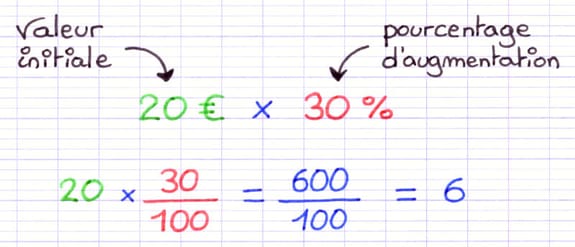 valeur initiale
pourcentage d'augmentation
20 € × 30 %
20 × 30/100 = 600/100 = 6